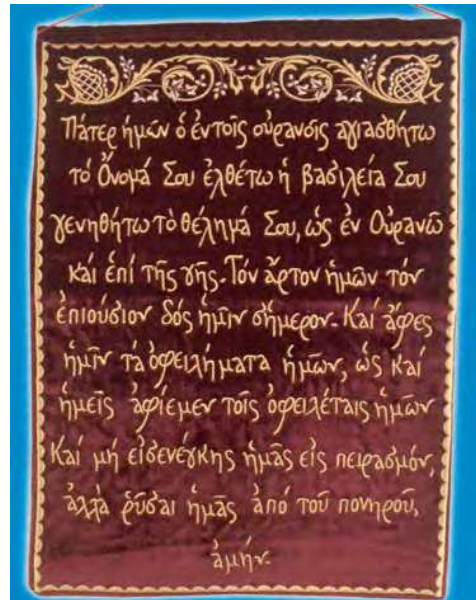 Πάτερ ἡμῶν ὁ ἐν τοῖς οὐρανοῖς ἁγιασθήτω
τό Ὄνομά Σου ἐλθέτω ἡ βασιλεία Σου
γενηθήτω τὸ θέλημά Σου, ὡς ἐν Οὐρανῶ
καί ἐπί τῆς γῆς. Τόν ἄρτον ἡμῶν τόν
ἐπιούσιον δός ἡμῖν σήμερον. Καί ἄφες
ἡμῖν τά ὀφειλήματα ἡμῶν, ὡς καί
ἡμεῖς ἀφίεμεν τοῖς ὀφειλέταις ἡμῶν
Καί μή εἰσενέγκης ἡμᾶς εἰς πειρασμόν,
ἀλλά ῥῦσαι ἡμᾶς ἀπό τοῦ πονηροῦ,
ἀμήν.